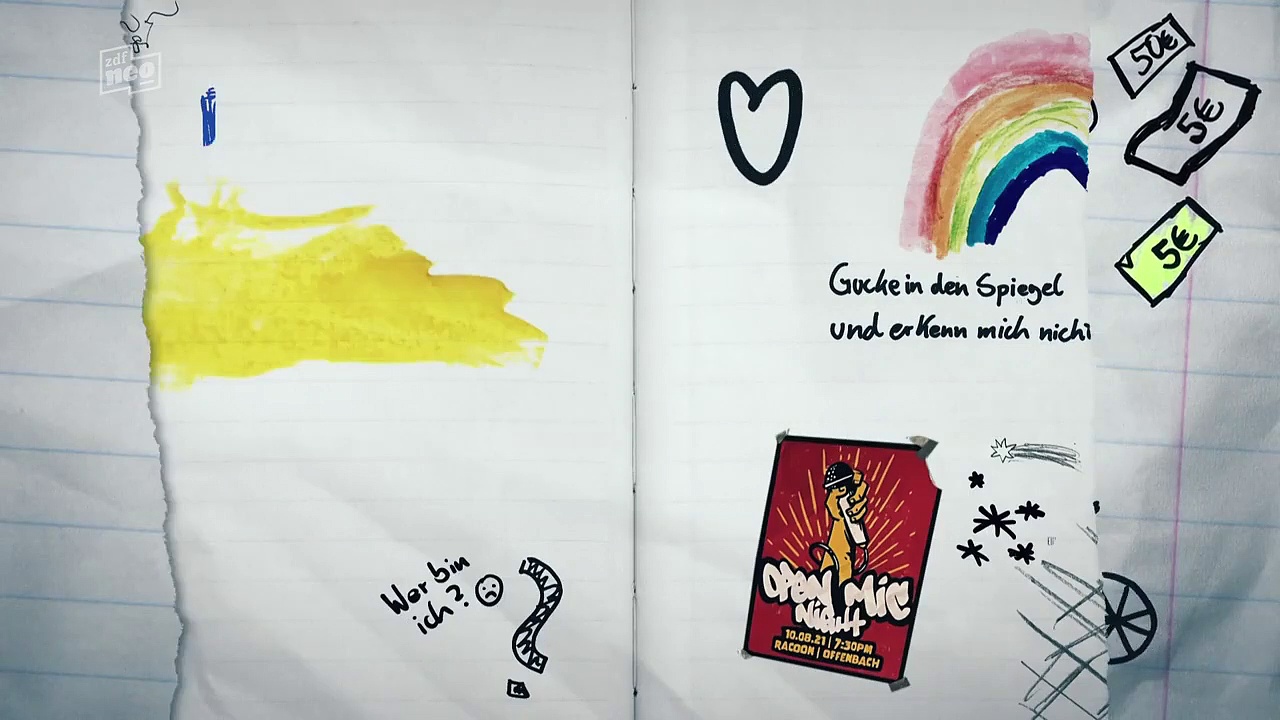 zdf
neo
50€
5€
5€
Gucke in den Spiegel
und erkenn mich nicht
OPEN MIC
NIGHT
10.08.21 | 7:30PM
RACOON | OFFENBACH
Wer bin
ich?